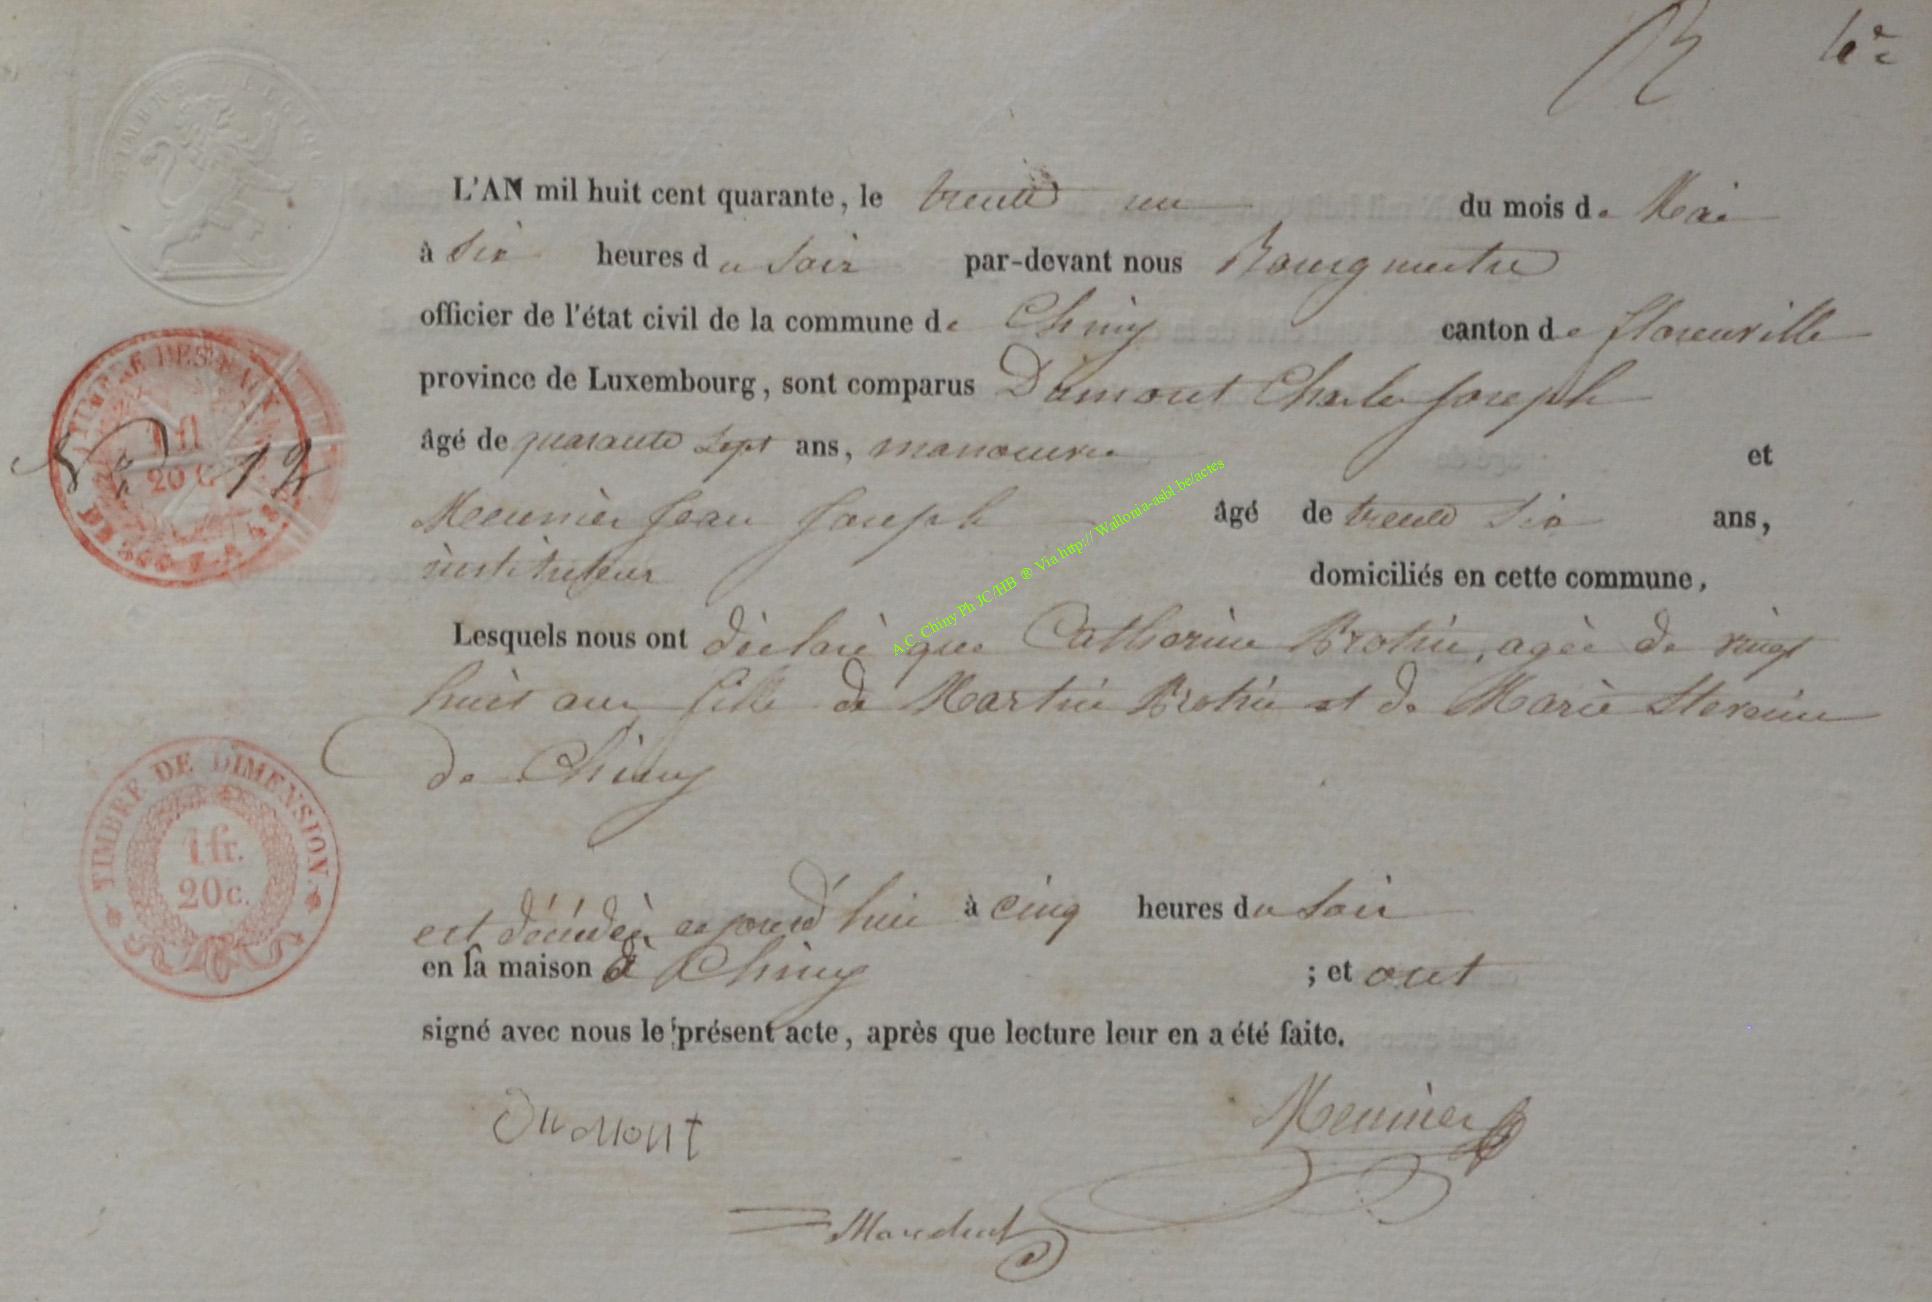 6e
TIMBRE BELGIQUE
L'AN mil huit cent quarante, le trente un du mois de Mai
à Six heures du Soir par-devant nous Bourgmestre
officier de l'état civil de la commune de Chiny canton de florenville
province de Luxembourg, sont comparus Dumont Charles Joseph
âgé de quarante sept ans, manoeuvre et
No 12
Meunier Jean Joseph âgé de trente Six ans,
instituteur domiciliés en cette commune,
Lesquels nous ont déclaré que Catherine Brotin, agée de vingt
huit ans fille de Martin Brotin et de Marie Stevenin
de Chiny
TIMBRE DE DIMENSION.
1 fr.
20c.
est décédée aujourd'hui à cinq heures du Soir
en sa maison à Chiny ; et ont
signé avec nous le présent acte, après que lecture leur en a été faite.
Dumont
Meunier
A.C. Chiny Ph JC/HB ® Via http:// Wallonia-asbl.be/actes